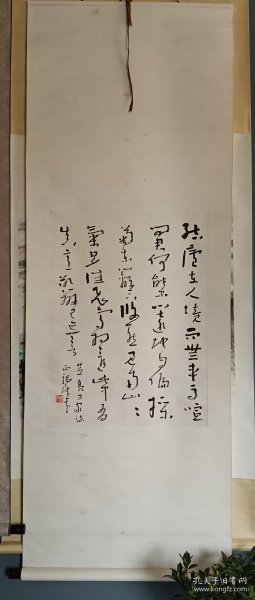 結廬在人境而無車馬喧
問君何能爾心遠地自偏採
菊東籬下悠然見南山〻
氣日夕佳飛鳥相與還此中有
真意欲辨已忘言
方家
正
孔夫子旧书网